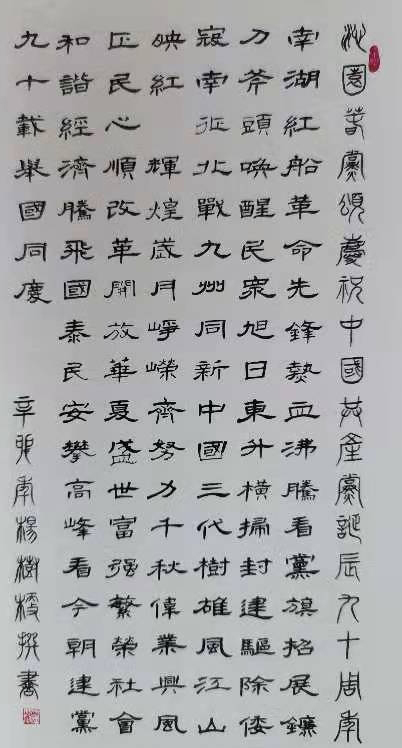 沁園春黨頌慶祝中國共產黨誕辰九十周年
南湖紅船革命先鋒熱血沸騰看黨旗招展鐮
刀斧頭喚醒民衆旭日東升橫掃封建驅除倭
寇南征北戰九州同新中國三代樹雄風江山
映紅 輝煌歲月崢嶸齊努力千秋偉業興風
正民心順改革開放華夏盛世富强繁榮社會
和諧經濟騰飛國泰民安攀高峰看今朝建黨
九十載舉國同慶
辛卯年楊樹撰書